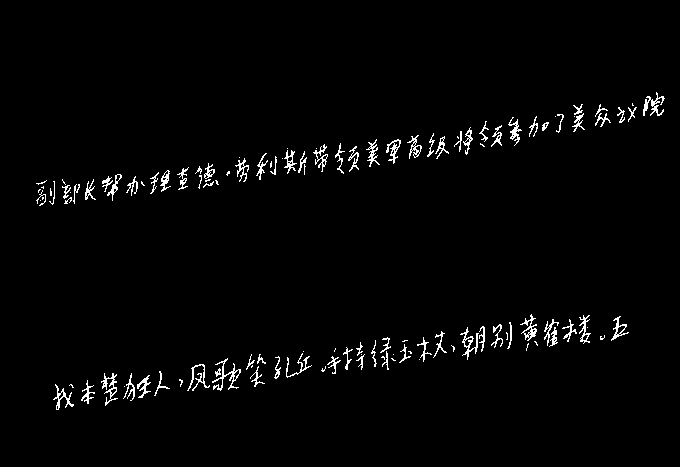 副部长帮办理查德·劳利斯带领美军高级将领参加了美众议院
我本楚狂人,凤歌笑孔丘.手持绿玉杖,朝别黄崔楼。五